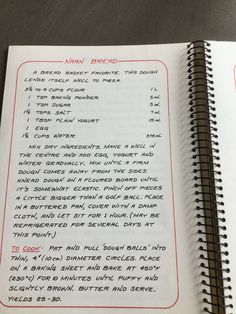 NAAN BREAD
A BREAD BASKET FAVORITE. THIS DOUGH
LENDS ITSELF WELL TO PIZZA.
3½ TO 4 CUPS FLOUR 1 L
1 TSP BAKING POWDER 5 mL
1 TSP SUGAR 5 mL
1½ TSPS SALT 7 mL
1 TBSP PLAIN YOGURT 15 mL
1 EGG
1½ CUPS WATER 375 mL
MIX DRY INGREDIENTS. MAKE A WELL IN
THE CENTRE AND ADD EGG, YOGURT AND
WATER GRADUALLY. MIX UNTIL A FIRM
DOUGH COMES AWAY FROM THE SIDES.
KNEAD DOUGH ON A FLOURED BOARD UNTIL
IT'S SOMEWHAT ELASTIC. PINCH OFF PIECES
A LITTLE BIGGER THAN A GOLF BALL. PLACE
IN A BUTTERED PAN, COVER WITH A DAMP
CLOTH, AND LET SIT FOR 1 HOUR. (MAY BE
REFRIGERATED FOR SEVERAL DAYS AT
THIS POINT.)
TO COOK: PAT AND PULL DOUGH "BALLS" INTO
THIN, 4" (10 cm) DIAMETER CIRCLES. PLACE
ON A BAKING SHEET AND BAKE AT 450°F
(230°C) FOR 10 MINUTES UNTIL PUFFY AND
SLIGHTLY BROWN. BUTTER AND SERVE.
YIELDS 25-30.